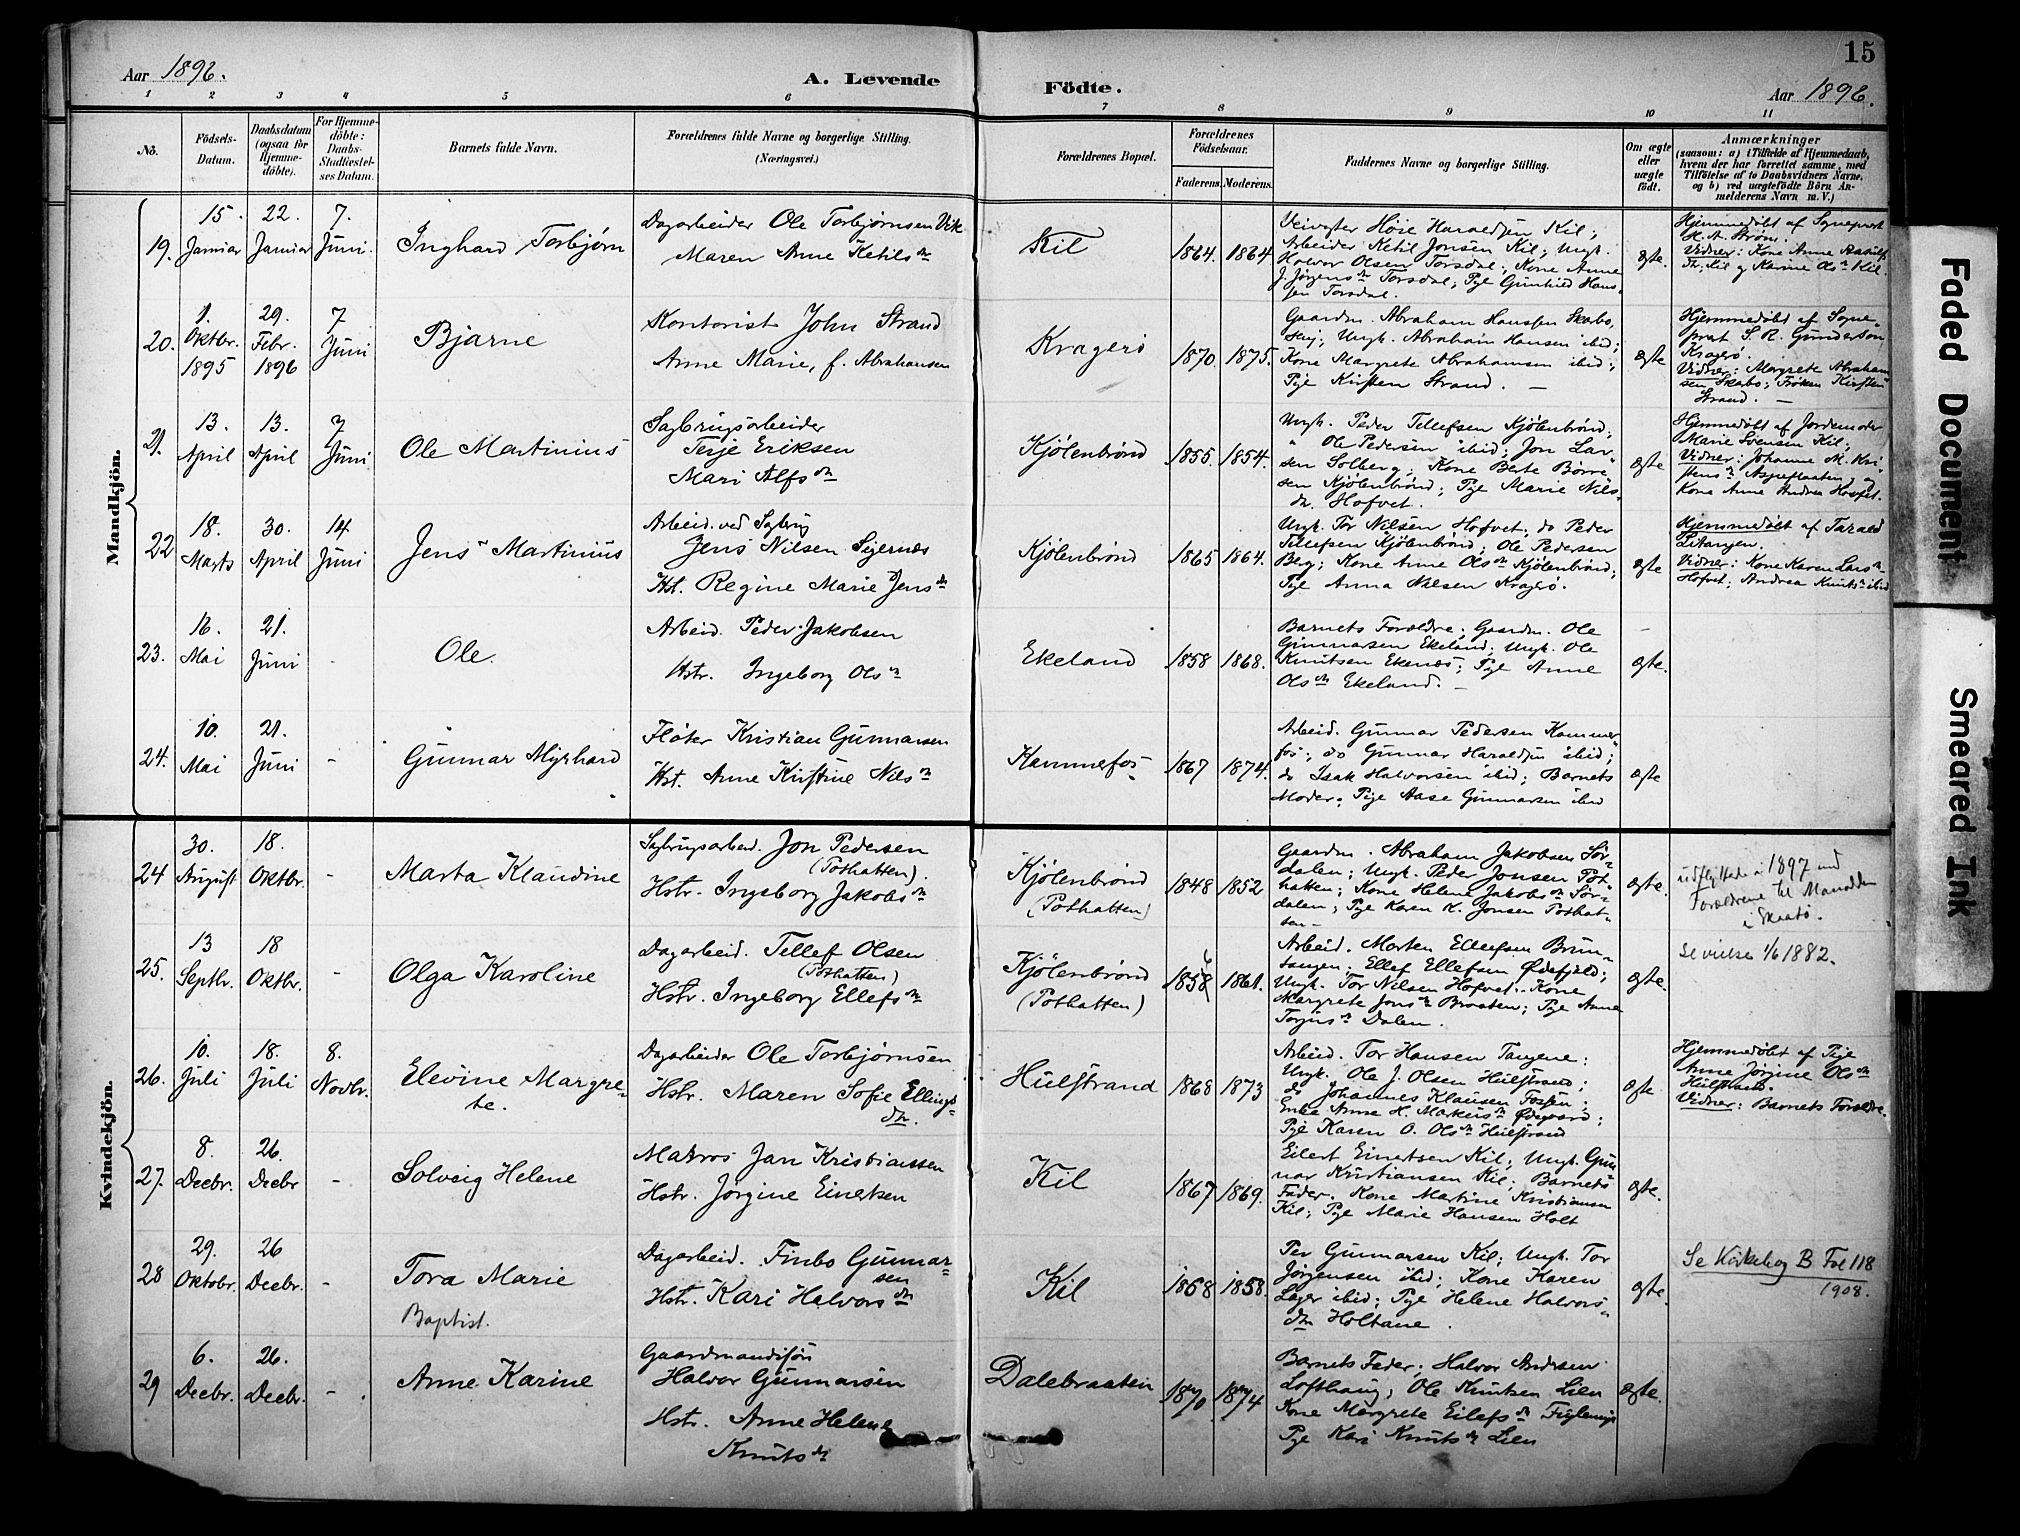 15
Aar 1896.
A. Levende
Födte.
Aar 1896.
1 2 3 4 5 6 7 8 9 10 11
No.
Födsels-
Datum.
Daabsdatum
(ogsaa for
Hjemme-
döbte).
For Hjemme-
döbte:
Daabs-
Stadfæstel-
ses Datum.
Barnets fulde Navn.
Forældrenes fulde Navne og borgerlige Stilling.
(Næringsvei.)
Forældrenes Bopæl.
Forældrenes
Födselsaar.
Faderens. Moderens.
Faddernes Navne og borgerlige Stilling.
Om ægte
eller
uægte
födt.
Anmærkninger
(saasom: a) i Tilfælde af Hjemmedaab,
hvem der har forrettet samme, med
Tilföielse af to Daabsvidners Navne,
og b) ved uægtefödte Börn An-
melderens Navn m.V.)
Mandkjön.
19.
15.
Januar
22.
Januar
7.
Juni.
Inghard Torbjørn
Dagarbeider Ole Torbjørnsen Vik
Maren Anne Ketilsdn
Kil
1864. 1864
Veivogter Høie Haraldsen Kil;
Arbeider Ketil Jonsen Kil; Ungk.
Halvor Olsen Torsdal; Kone Anne
J. Jørgensdn Torsdal; Pige Gunhild Hans-
sen Torsdal.
ægte.
Hjemmedøbt af Sogneprest
H. A. Strøm.
Vidner: Kone Anne
Kil og Karine Olsn Kil.
20.
1.
Oktbr.
1895
29.
Febr.
1896
7
Juni
Bjarne
Kontorist John Strand
Anne Marie, f. Abrahamsen
Kragerø
1870. 1875.
Gaardm. Abraham Hanssen Skarbo,
Ungk. Abraham Hansen ibid;
Kone Margrete Abrahamsen ibid;
Pige Kirsten Strand. —
ægte
Hjemmedøbt af Sogne-
prest S. R. Gunderson
Kragerø.
Vidner: Margrete Abraham
sen Skabo; Frøken Kirsten
Strand. —
21.
13.
April
13.
April
7
Juni.
Ole Martinius
Sagbrugsarbeider
Terje Eriksen
Mari Alfsdn
Kjølenbrønd
1855. 1854.
Ungk. Peder Tellefsen Kjølenbrønd;
" Ole Pedersen ibid; Jon Lar-
sen Solberg; Kone Berte Børre-
sen Kjølenbrønd; Pige Marie Nils-
dn. Hofvet.
ægte
Hjemmedøbt af Jordemoder
Marie Svensen Kil.
Vidner: Johanne M. Kri-
stensdn og
Kone Anne Andrea Hofvet.
22
18.
Marts
30.
April
14
Juni
Jens Martinius
Arbeid. ved Sagbrug
Jens Nilsen Sigernæs
Hst. Regine Marie Jensdn
Kjølenbrønd
1865 1864.
Ungk. Tor Nilsen Hofvet; do Peder
Tellefsen Kjølenbrønd; Ole Pedersen
Berg; Kone Anne Olsdn Kjølenbrønd;
Pige Anna Nilsen Kragerø.
ægte
Hjemmedøbt af Tarald
Litangen.
Vidner: Kone Karen Larsdn
Hofvet; Andrea Knutsn ibid
23.
16.
Mai
21.
Juni
-
Ole.
Arbeid. Peder Jakobsen
Hstr. Ingeborg Olsdn
Ekeland
1858 1868.
Barnets Forældre; Gaardm. Ole
Gunnarsen Ekeland; Ungk. Ole
Knutsen Ekenæs; Pige Anne
Olsdn Ekeland. —
ægte.
24.
10.
Mai
21.
Juni
-
Gunnar Myrhard
Fløter Kristian Gunnarsen
Hst. Anne Kirstine Nilsdn
Kammefos
1867 1874.
Arbeid. Gunnar Pedersen Kammer-
fos; do Gunnar Haraldsen ibid;
do Isak Halvorsen ibid; Barnets
Moder; Pige Aase Gunnarsen ibid
ægte
Kvindekjön.
24
30.
August
18.
Oktbr.
-
Marta Klaudine
Sagbrugsarbeid. Jon Pedersen
(Pothatten).
Hstr. Ingeborg Jakobsdn
Kjølenbrønd
(Pothatten)
1848 1852
Gaardm. Abraham Jakobsen Sør-
dalen; Ungk. Peder Jonsen Pot-
hatten; Kone Helene Jakobsdn Sør-
dalen; Pige Karen K. Jonsen Pothat-
ten—
ægte.
udflyttede i 1897 med
Forældrene til
i Skaatø.
25.
13
Septbr.
18
Oktbr.
-
Olga Karoline
Dagarbeid. Tellef Olsen
(Pothatten)
Hstr. Ingeborg Ellefsdn
Kjølenbrønd
(Pothatten)
1858 1861.
Arbeid. Morten Ellefsen Brun-
tangen; Ellef Ellefsen Ødefjeld;
Ungk. Tor Nilsen Hofvet. Kone
Margrete Jonsdn Braaten; Pige Anne
Torjusdn Dalen.
ægte.
Se vielse 1/6 1882.
26.
10.
Juli
18.
Juli
8.
Novbr.
Elevine Margre-
te.
Dagarbeider Ole Torbjørnsen
Hstr. Maren Sofie Ellings-
dn.
Hulstrand
1868 1873
Arbeid. Tor Hansen Tangene;
Ungk. Ole J. Olsen Hulstrand;
do Johannes Klausen Fossen;
Enke Anne H. Markusdn Ødegaard;
Pige Karen O. Olsdn Hulstrand
ægte
Hjemmedøbt af Pige
Anne Jørgine Olsdn
Hulstrand.
Vidner: Barnets Forældre.
27.
8.
Decbr.
26.
Decbr
-
Solveig Helene
Matros Jan Kristiansen
Hstr. Jørgine Einertsen
Kil
1867 1869.
Eilert Einertsen Kil; Ungk. Gun
nar Kristiansen Kil; Barnets
Fader. Kone Martine Kristiansen
Kil; Pige Marie Hansen Holt
ægte.
28
29.
Oktobr.
26
Decbr.
-
Tora Marie
Baptist.
Dagarbeid. Finbo Gunnar-
sen
Hstr. Kari Halvorsdn
Kil
1858 1858.
Per Gunnarsen Kil; Ungk. Tor
Jørgensen ibid; Kone Karen
Lager ibid; Pige Helene Halvors-
dn Holtane.
ægte.
Se Kirkebog B Fol 118
1908.
29
6.
Decbr.
26.
Decbr.
-
Anne Karine
Gaardmandssøn
Halvor Gunnarsen
Hstr. Anne Helene
Knutsdn
Dalebraaten
1870 1874
Barnets Fader; Halvor Andersen
Lofthaug; Ole Knutsen Lien
Kone Margrete Eilefsdn
Pige Kari Knutsdn Lien
ægte.
Faded Document
Smeared Ink